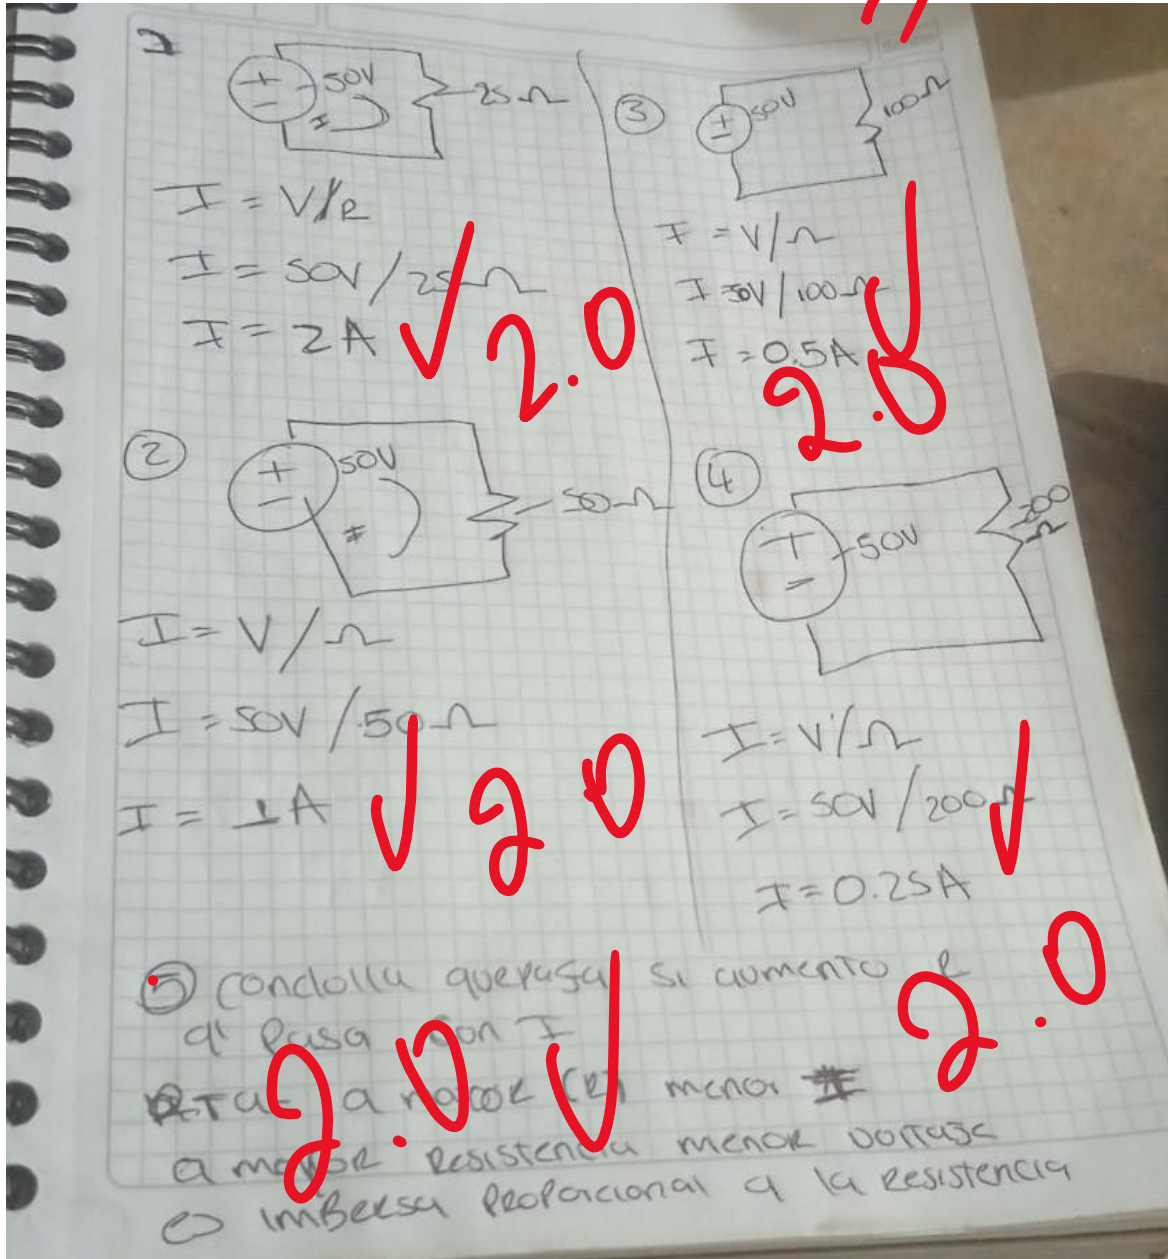 1
50V
25Ω
I
I = V/R
I = 50V/25Ω
I = 2A
2.0
②
50V
50Ω
I
I = V/Ω
I = 50V/50Ω
I = 1A
2 0
③
50V
100Ω
I = V/Ω
I=50V/100Ω
I = 0.5A
2.0
④
50V
200
Ω
I = V/Ω
I = 50V/200Ω
I = 0.25A
2.0
⑤ condolla que pasa si aumento R
q' pasa con I
a mayor (R) menor I
2.0
a mayor Resistencia menor voltaje
es imbersa Propocional a la Resistencia